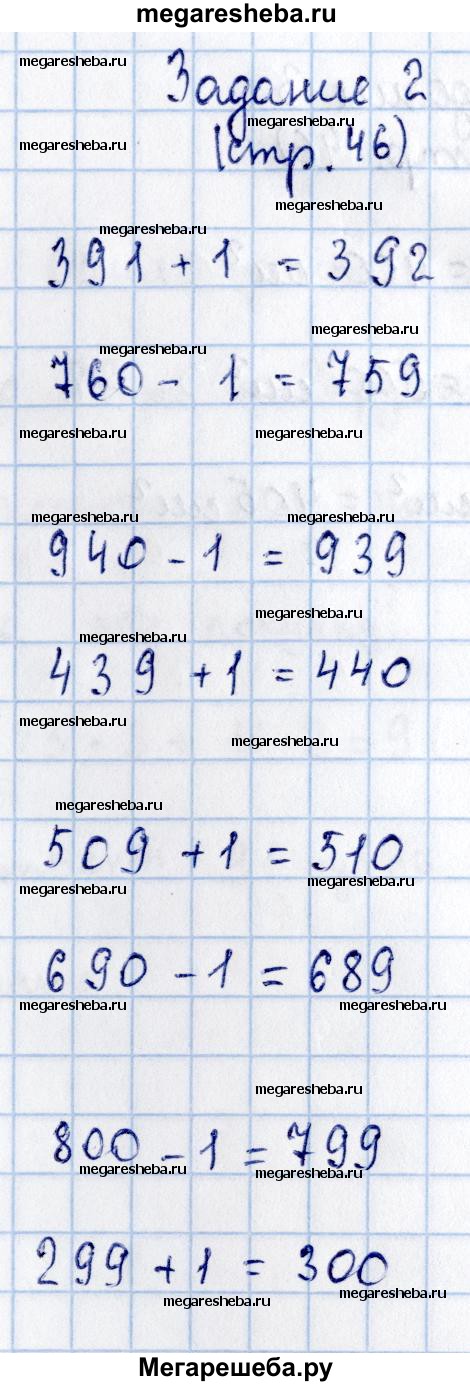 megaresheba.ru
megaresheba.ru
Задание 2
megaresheba.ru
megaresheba.ru
(стр. 46)
megaresheba.ru
megaresheba.ru
391 + 1 = 392
megaresheba.ru
megaresheba.ru
760 - 1 = 759
megaresheba.ru megaresheba.ru
megaresheba.ru megaresheba.ru
940 - 1 = 939
megaresheba.ru
megaresheba.ru
439 + 1 = 440
megaresheba.ru
megaresheba.ru
megaresheba.ru
509 + 1 = 510
megaresheba.ru megaresheba.ru
690 - 1 = 689
megaresheba.ru megaresheba.ru
megaresheba.ru
800 - 1 = 799
megaresheba.ru megaresheba.ru
299 + 1 = 300
megaresheba.ru megaresheba.ru
Мегарешеба.ру